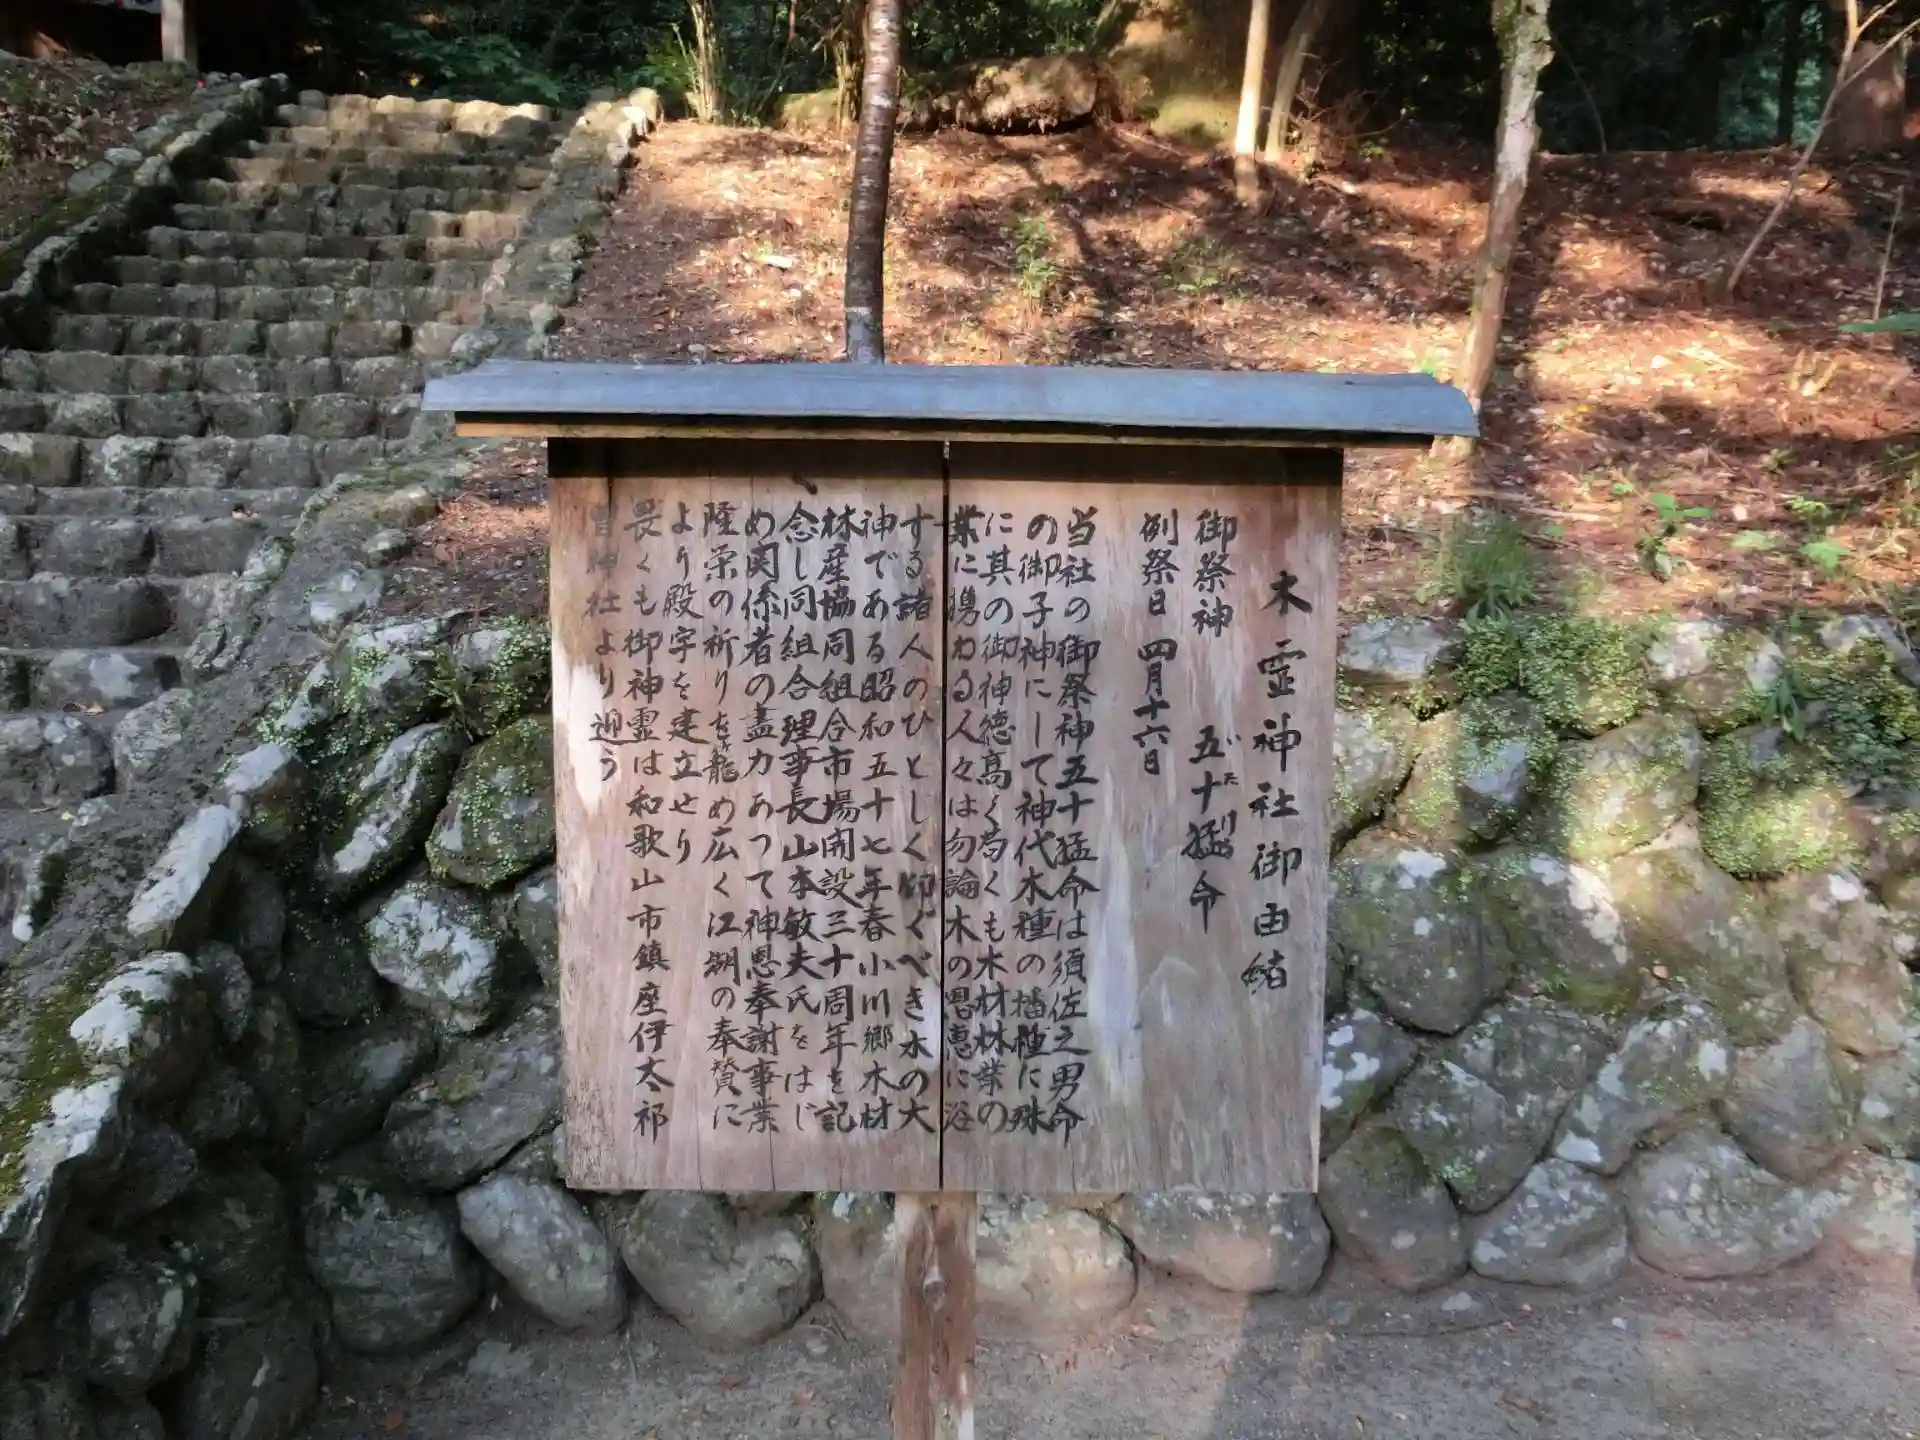 木霊神社御由緒
御祭神 五十猛命
いたけるの
例祭日 四月十六日
当社の御祭神五十猛命は須佐之男命
の御子神にして神代木種の播種に殊
に其の御神徳高く苟くも木材林業の
業に携わる人々は勿論木の恩恵に浴
する諸人のひとしく仰ぐべき木の大
神である昭和五十七年春小川郷木材
林産協同組合市場開設三十周年を記
念し同組合理事長山本敏夫氏をはじ
め関係者の盡力あつて神恩奉謝事業
隆栄の祈りを籠め広く江湖の奉賛に
より殿宇を建立せり
畏くも御神霊は和歌山市鎮座伊太祁
曽神社より迎う